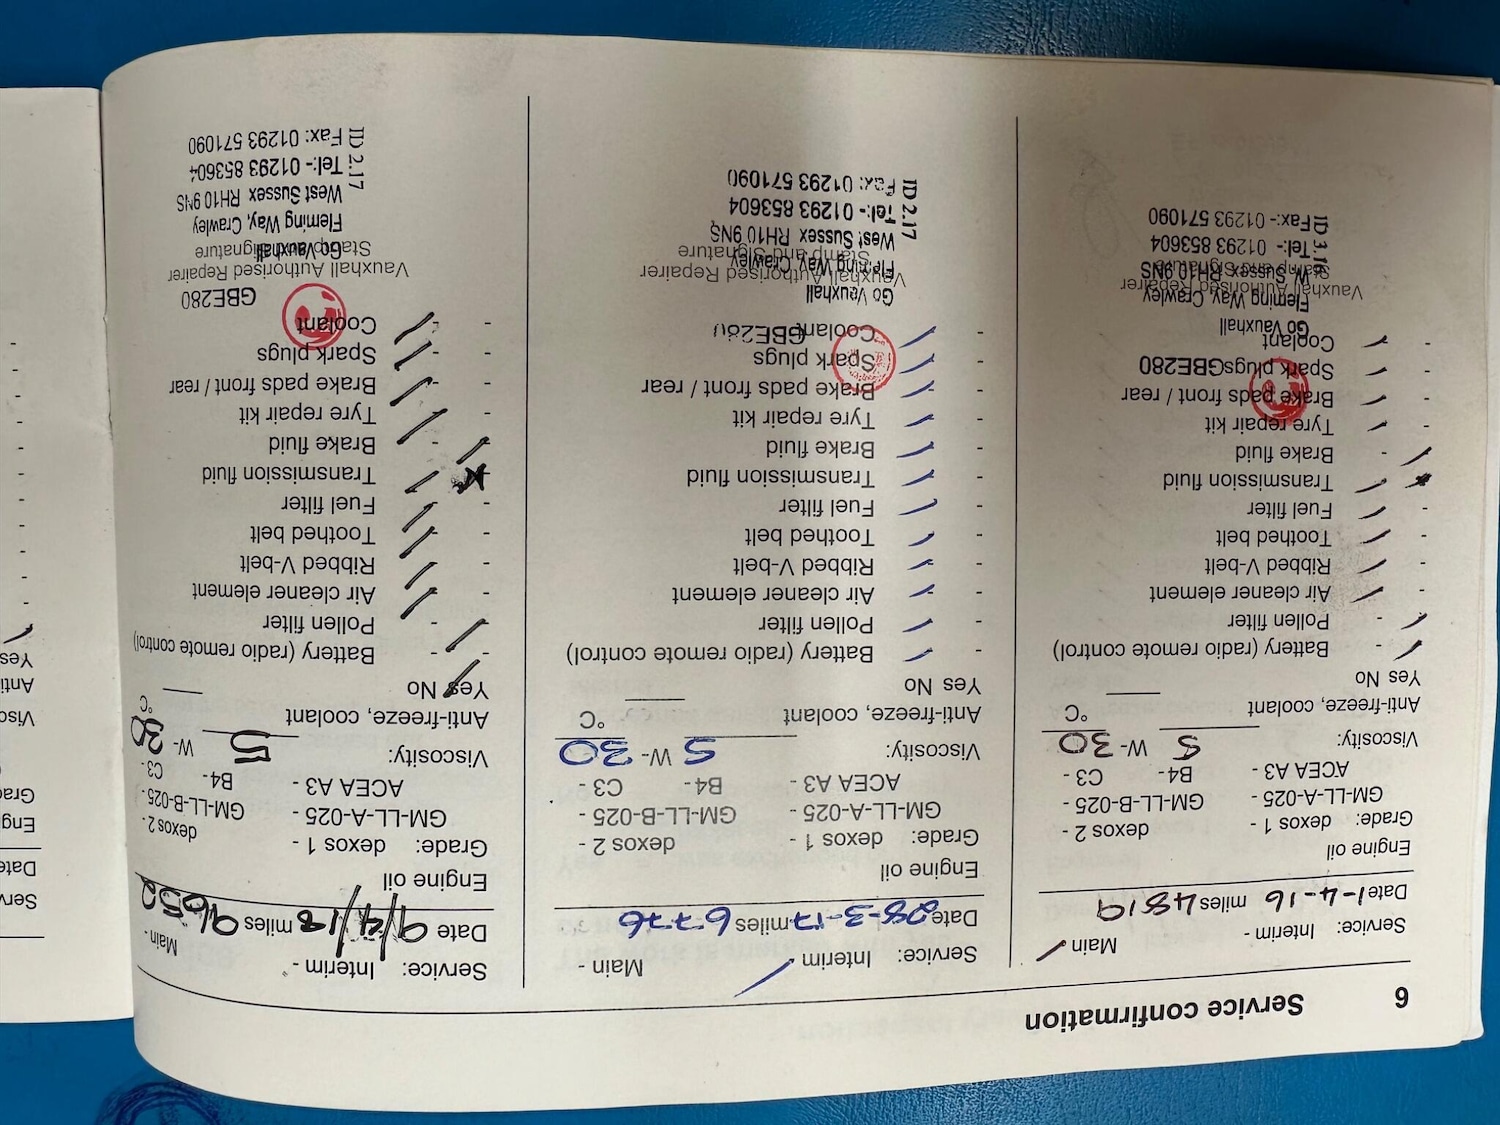 6 Service confirmation
Service: Interim - Main -
Date 1-4-16 miles 4819
Engine oil
Grade: dexos 1 - dexos 2 -
GM-LL-A-025 - GM-LL-B-025 -
ACEA A3 - B4 - C3 -
Viscosity: 5 W- 30
Anti-freeze, coolant °C
Yes No
- - Battery (radio remote control)
- - Pollen filter
- - Air cleaner element
- - Ribbed V-belt
- - Toothed belt
- - Fuel filter
- - Transmission fluid
- - Brake fluid
- - Tyre repair kit
- - Brake pads front / rear
- - Spark plugs GBE280
- - Coolant
Go Vauxhall
Fleming Way, Crawley
Vauxhall Authorised Repairer
W. Sussex RH10 9NS
Stamp and Signature
Tel:- 01293 853604
Fax:- 01293 571090
ID 3.16
Service: Interim - Main -
Date 28-3-17 miles 6776
Engine oil
Grade: dexos 1 - dexos 2 -
GM-LL-A-025 - GM-LL-B-025 -
ACEA A3 - B4 - C3 -
Viscosity: 5 W- 30
Anti-freeze, coolant °C
Yes No
- - Battery (radio remote control)
- - Pollen filter
- - Air cleaner element
- - Ribbed V-belt
- - Toothed belt
- - Fuel filter
- - Transmission fluid
- - Brake fluid
- - Tyre repair kit
- - Brake pads front / rear
- - Spark plugs
- - Coolant GBE280
Go Vauxhall
Vauxhall Authorised Repairer
Fleming Way, Crawley
Stamp and Signature
West Sussex RH10 9NS
Tel:- 01293 853604
Fax: 01293 571090
ID 2.17
Service: Interim - Main -
Date 9/4/18 miles 9652
Engine oil
Grade: dexos 1 - dexos 2 -
GM-LL-A-025 - GM-LL-B-025 -
ACEA A3 - B4 - C3 -
Viscosity: 5 W- 30
Anti-freeze, coolant °C
Yes No
- - Battery (radio remote control)
- - Pollen filter
- - Air cleaner element
- - Ribbed V-belt
- - Toothed belt
- - Fuel filter
- - Transmission fluid
- - Brake fluid
- - Tyre repair kit
- - Brake pads front / rear
- - Spark plugs
- - Coolant
GBE280
Vauxhall Authorised Repairer
Stamp and Signature
Go Vauxhall
Fleming Way, Crawley
West Sussex RH10 9NS
Tel:- 01293 853604
Fax: 01293 571090
ID 2.17
Serv
Date
Eng
Grad
Visc
Anti
Yes